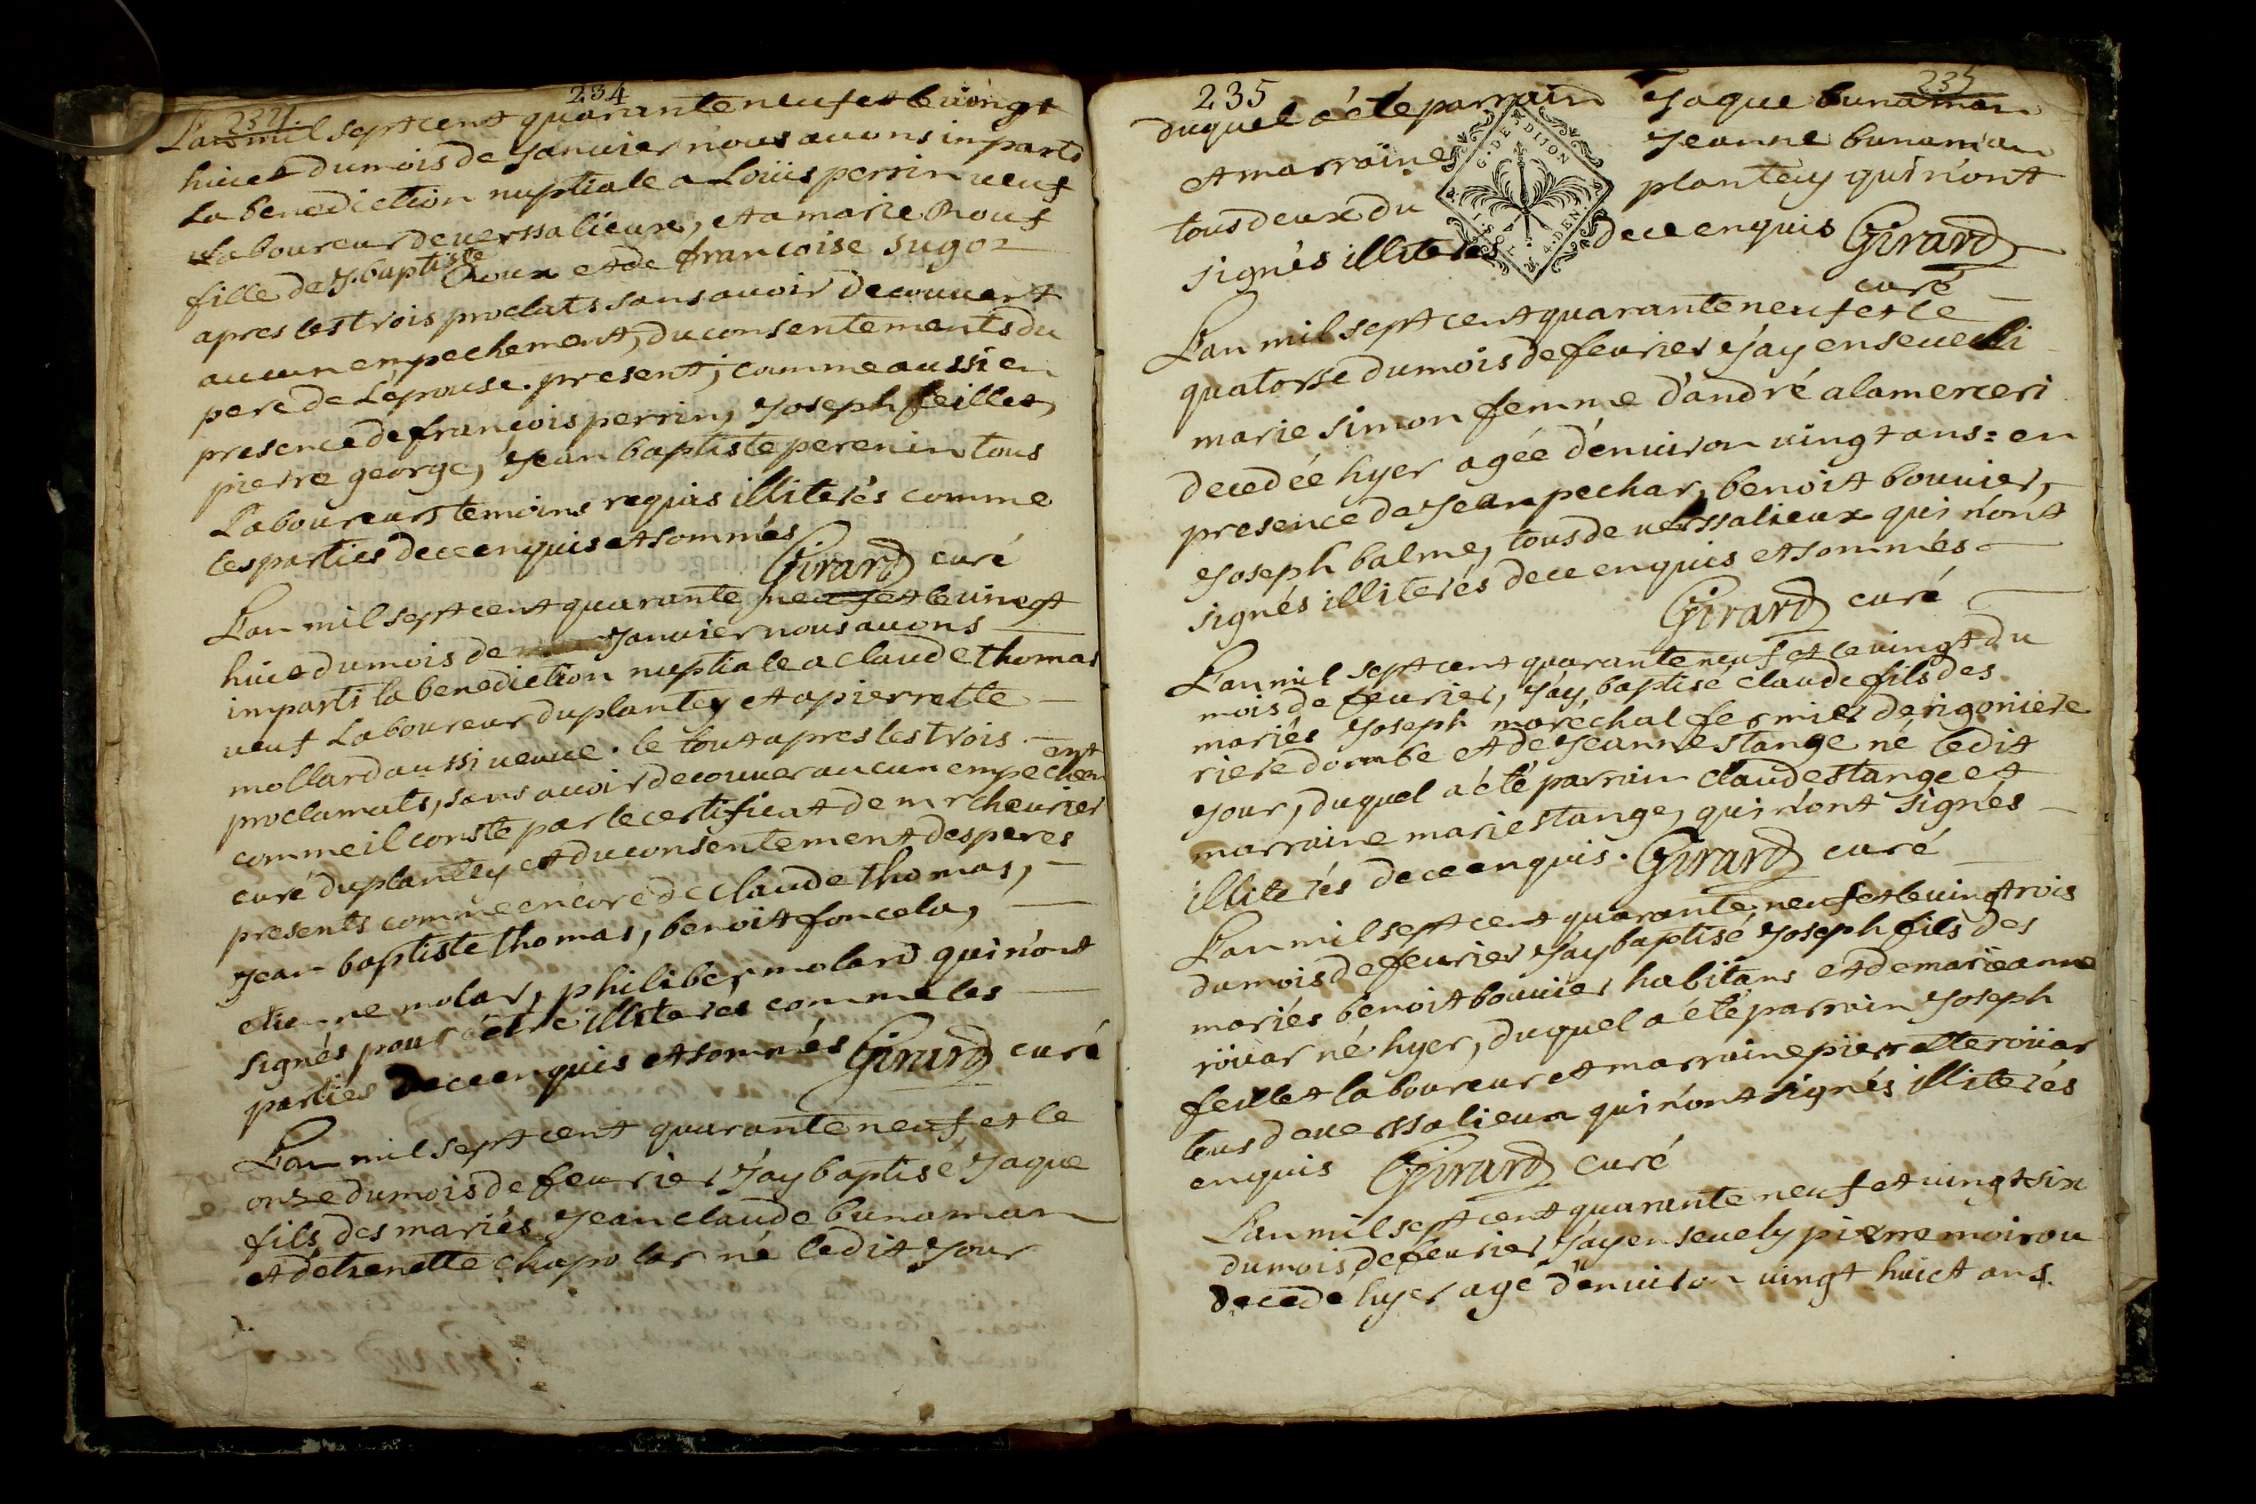 234
234
L'an mil sept cent quarante neuf et le vingt
huict du mois de Janvier nous avons imparti
La benediction nuptiale a Loüis perrin veuf
Laboureur de verssalieux, et a marie Roux
fille de J. baptiste Roux et de francoise sugoz
apres les trois proclats sans avoir decouvert
aucun empechement, du consentements du
pere de Lepouse. present, comme aussi en
presence de françois perrin, Joseph feillet,
pierre george, Jean baptiste perenin tous
Laboureurs temoins requis illiterés comme
les parties de ce enquis et sommés
Girard curé
L'an mil sept cent quarante neuf et le vingt
huict du mois de Janvier nous avons
imparti la benediction nuptiale a claude thomas
veuf Laboureur du plantey et a pierrette
mollard aussi veuve. le tout apres les trois
proclamats, sans avoir decouver aucun empechement
comme il conste par le certificat de mr chevrier
curé du plantey et du consentement des peres
presents comme encore de claude thomas,
Jean baptiste thomas, benoit foncela,
etienne molar, philiber molard qui n'ont
signés pour être illiterés comme les
parties de ce enquis et sommés Girard curé
L'an mil sept cent quarante neuf et le
onze du mois de fevrier J'ay baptisé Jaque
fils des mariés Jean claude bunaman
et d'etienette chapolar né ledit Jour
235
235
duquel a été parrain Jaque bunaman
et marraine Jeanne bunaman
tous deux du plantey qui n'ont
signés illiterés de ce enquis Girard
curé
G. DE DIJON
4. DEN.
L'an mil sept cent quarante neuf et le
quatorse du mois de fevrier J'ay enseveli
marie simon femme d'andré alamerceri
decedée hyer agée d'environ vingt ans = en
presence de Jean pechar, benoit bouvier,
Joseph balme, tous de verssalieux qui n'ont
signés illiterés de ce enquis et sommés
Girard curé
L'an mil sept cent quarante neuf et le vingt du
mois de fevrier, J'ay baptisé claude fils des
mariés Joseph maréchal fermier de rigoniere
riere dombe et de Jeanne stange né ledit
Jour, duquel a été parrain claude stange et
marraine marie stange, qui n'ont signés
illiterés de ce enquis. Girard curé
L'an mil sept cent quarante neuf et le vingt trois
du mois de fevrier J'ay baptisé Joseph fils des
mariés benoit bouvier habitans et de marie anne
roüar né hyer, duquel a été parrain Joseph
feillet laboureur et marraine pierrette roüar
tous de verssalieux qui n'ont signés illiterés
enquis Girard curé
L'an mil sept cent quarante neuf et vingt six
du mois de fevrier J'ay ensevely pierre moirou
decede hyer agé d'environ vingt huict ans.